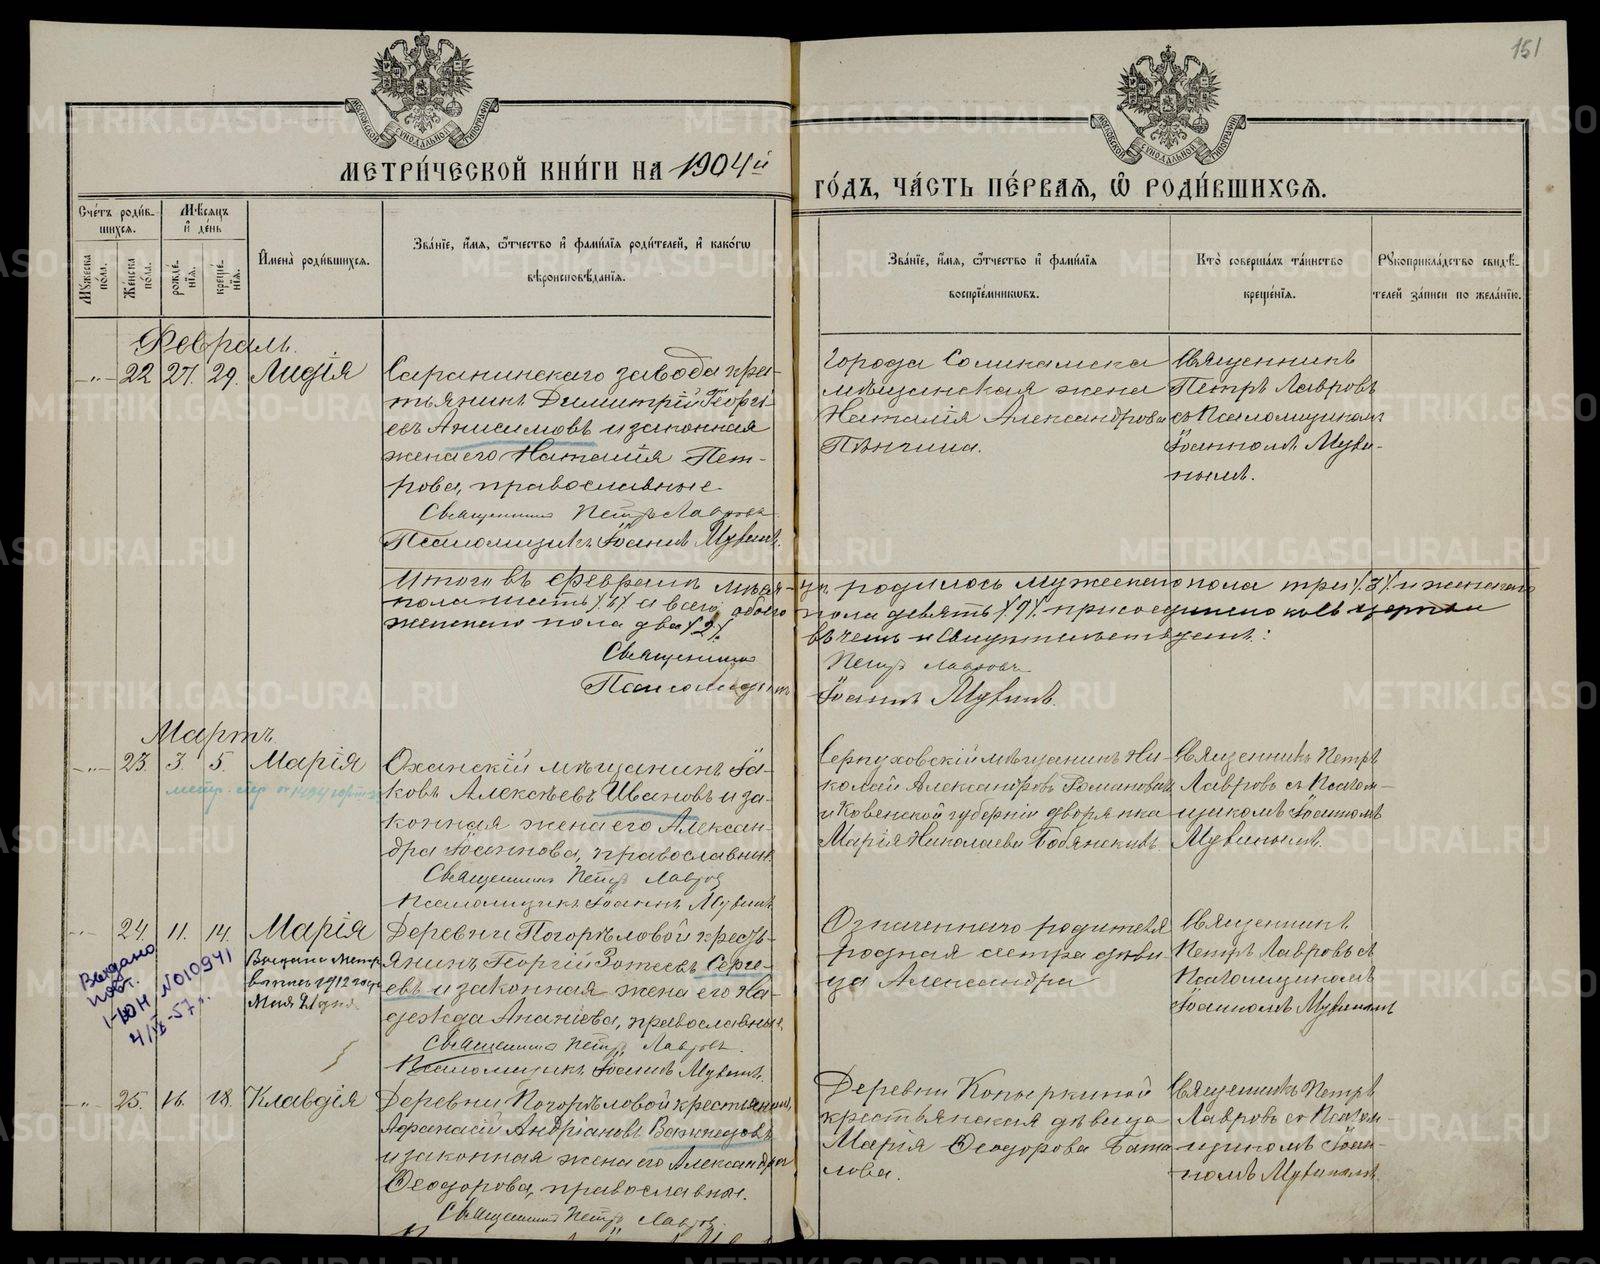 151
МОСКОВСКОЙ СѴНОДАЛЬНОЙ ТИПОГРАФІИ
МОСКОВСКОЙ СѴНОДАЛЬНОЙ ТИПОГРАФІИ
МЕТРИ́ЧЕСКОЙ КНИ́ГИ НА 1904й
ГО́ДЪ, ЧА́СТЬ ПЕ́РВАЯ, Ѽ РОДИ́ВШИХСЯ.
Сче́тъ роди́вшихся.
Мужеска пола.
Женска пола.
Мѣсяцъ и де́нь
рожде́нїя.
креще́нїя.
Имена̀ роди́вшихся.
Зва́нїе, и́мя, ѻ҆́тчество и фами́лїя роди́телей, и како́гѡ
вѣроисповѣ́данїя.
Зва́нїе, и́мя, ѻ҆́тчество и фами́лїя
воспрїе́мникѡвъ.
Кто̀ соверша́лъ та́инство
креще́нїя.
Рукоприкла́дство свидѣ́-
телей за́писи по жела́нїю.
Февраль.
-"- 22 27. 29. Лидія
Саранинскаго завода кре-
тьянинъ Димитрій Георгі-
евъ Анисимовъ и законная
жена его Наталія Пет-
рова, православные
Священникъ Петръ Лавровъ
Псаломщикъ Іоаннъ Мувинъ.
Города Соликамска
мѣщанская жена
Наталія Александрова
Пѣнчина.
Священникъ
Петръ Лавровъ
съ Псаломщикомъ
Іоанномъ Муви-
нымъ.
Итого въ Февралѣ мѣся-цѣ родилось мужескаго пола три /3/ и женскаго
пола шесть /6/ а всего обоего пола девять /9/ присоединено къ церкви
женскаго пола два /2/.
въ чемъ и свидѣтельствуемъ:
Священникъ Петръ Лавровъ
Псаломщикъ Іоаннъ Мувинъ.
Мартъ.
-"- 23. 3. 5. Марія
Оханскій мѣщанинъ Іа-
ковъ Алексѣевъ Ивановъ и за-
конная жена его Алексан-
дра Іоаннова, православные
Священникъ Петръ Лавровъ
Псаломщикъ Іоаннъ Мувинъ
Серпуховскій мѣщанинъ Ни-
колай Александровъ Романовъ
и Ковенской губерніи дворянка
Марія Николаева Бобянскивъ
Священникъ Петръ
Лавровъ съ Псалом-
щикомъ Іоанномъ
Мувинымъ.
-"- 24 11. 14. Марія
Выдана Метр.
выпись 1912 года
Мая 21 дня.
Выдано
повт.
I-ЮН №010941
4/IX-57 г.
Деревни Погорѣловой кресть-
янинъ Георгій Зотеевъ Серге-
евъ и законная жена его На-
дежда Ананіева, православные.
Священникъ Петръ Лавровъ.
Псаломщикъ Іоаннъ Мувинъ.
Означеннаго родителя
родная сестра дѣви-
ца Александра
Священникъ
Петръ Лавровъ съ
Псаломщикомъ
Іоанномъ Мувинымъ
-"- 25. 16. 18. Клавдія
Деревни Погорѣловой крестьянинъ
Афанасій Андріановъ
и законная жена его Александра
Ѳеодорова, православные.
Священникъ Петръ Лавровъ
Деревни Копыркиной
крестьянская дѣвица
Марія Ѳеодорова Бата-
лова.
Священникъ Петръ
Лавровъ съ Псалом-
щикомъ Іоан-
номъ Мувинымъ
METRIKI.GASO-URAL.RU